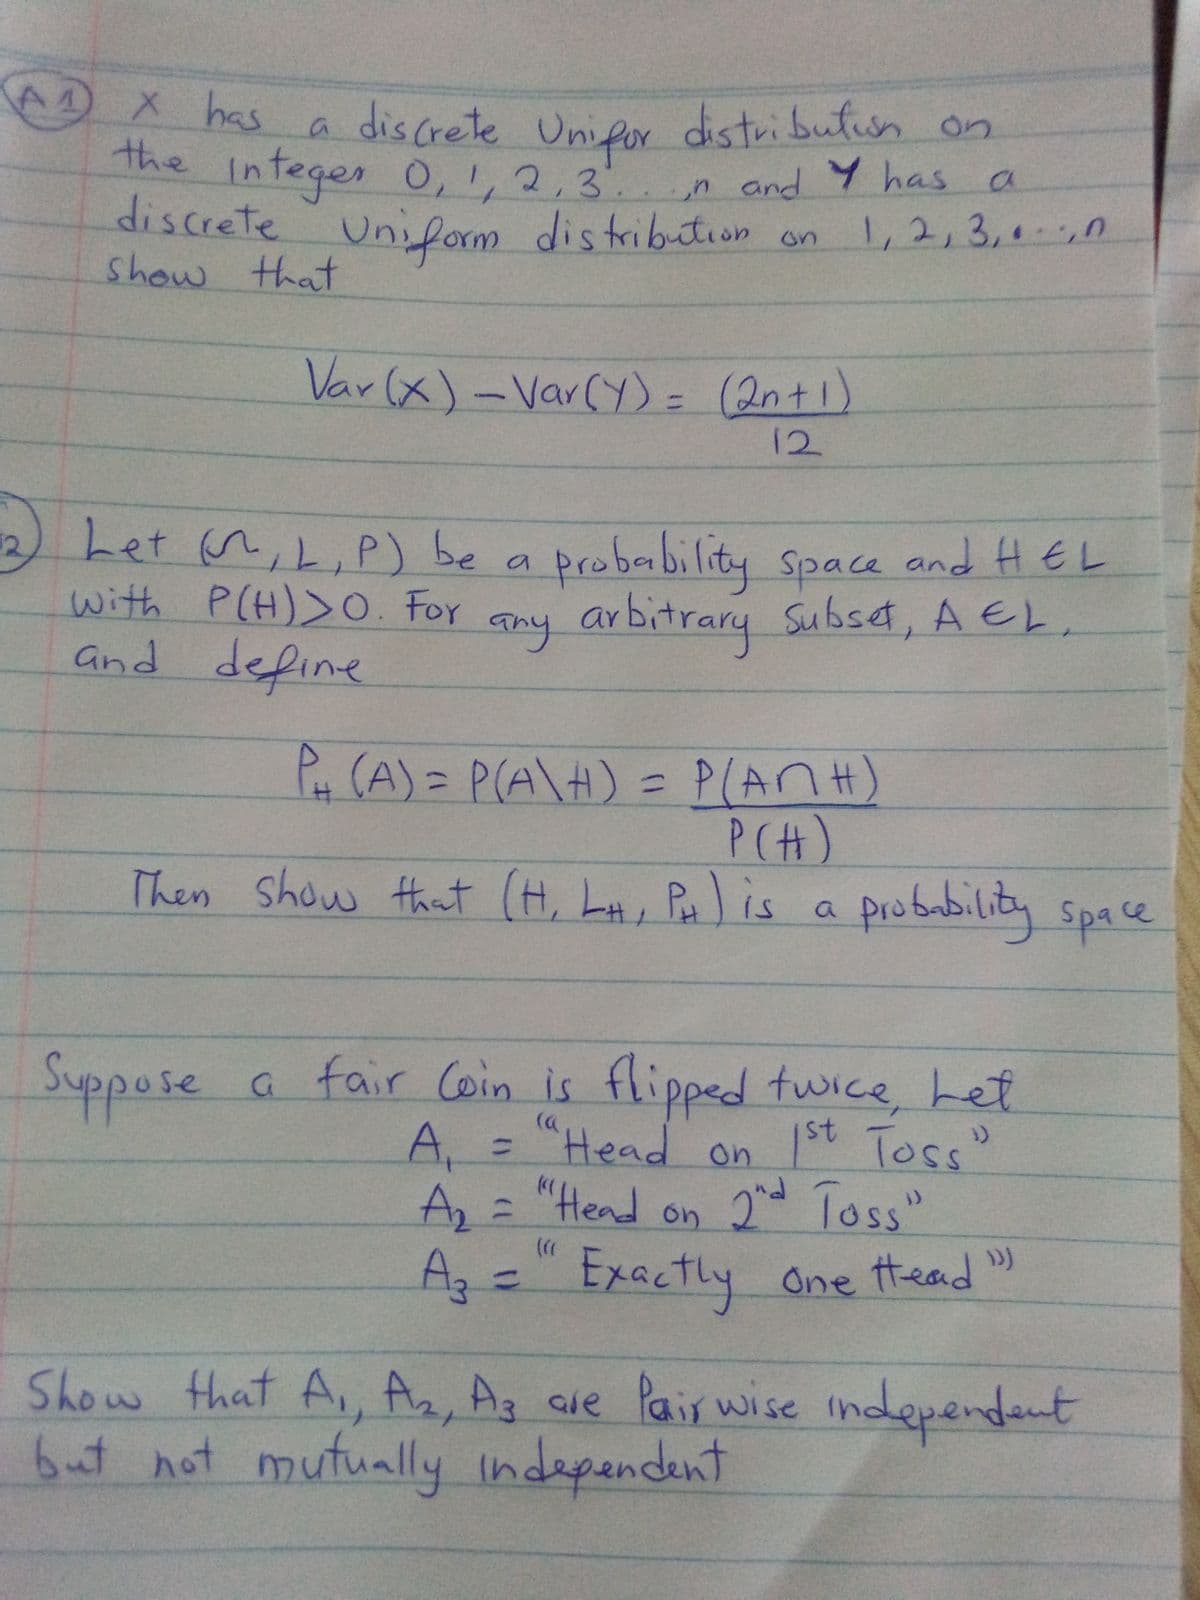 A1 X has a discrete Unifor distribution on
the Integer 0, 1, 2, 3 . . . ,n and Y has a
discrete Uniform distribution on 1, 2, 3, . . ., n
show that
Var(X) - Var(Y) = (2n+1)
12
2) Let (Ω, L, P) be a probability space and H ∈ L
with P(H)>0. For any arbitrary subset, A ∈ L,
and define
P_H (A) = P(A\H) = P(A∩H)
P(H)
Then show that (H, L_H, P_H) is a probability space
Suppose a fair Coin is flipped twice, Let
A₁ = "Head on 1st Toss"
A₂ = "Head on 2nd Toss"
A₃ = "Exactly One Head"
Show that A₁, A₂, A₃ are Pair wise independent
but not mutually independent